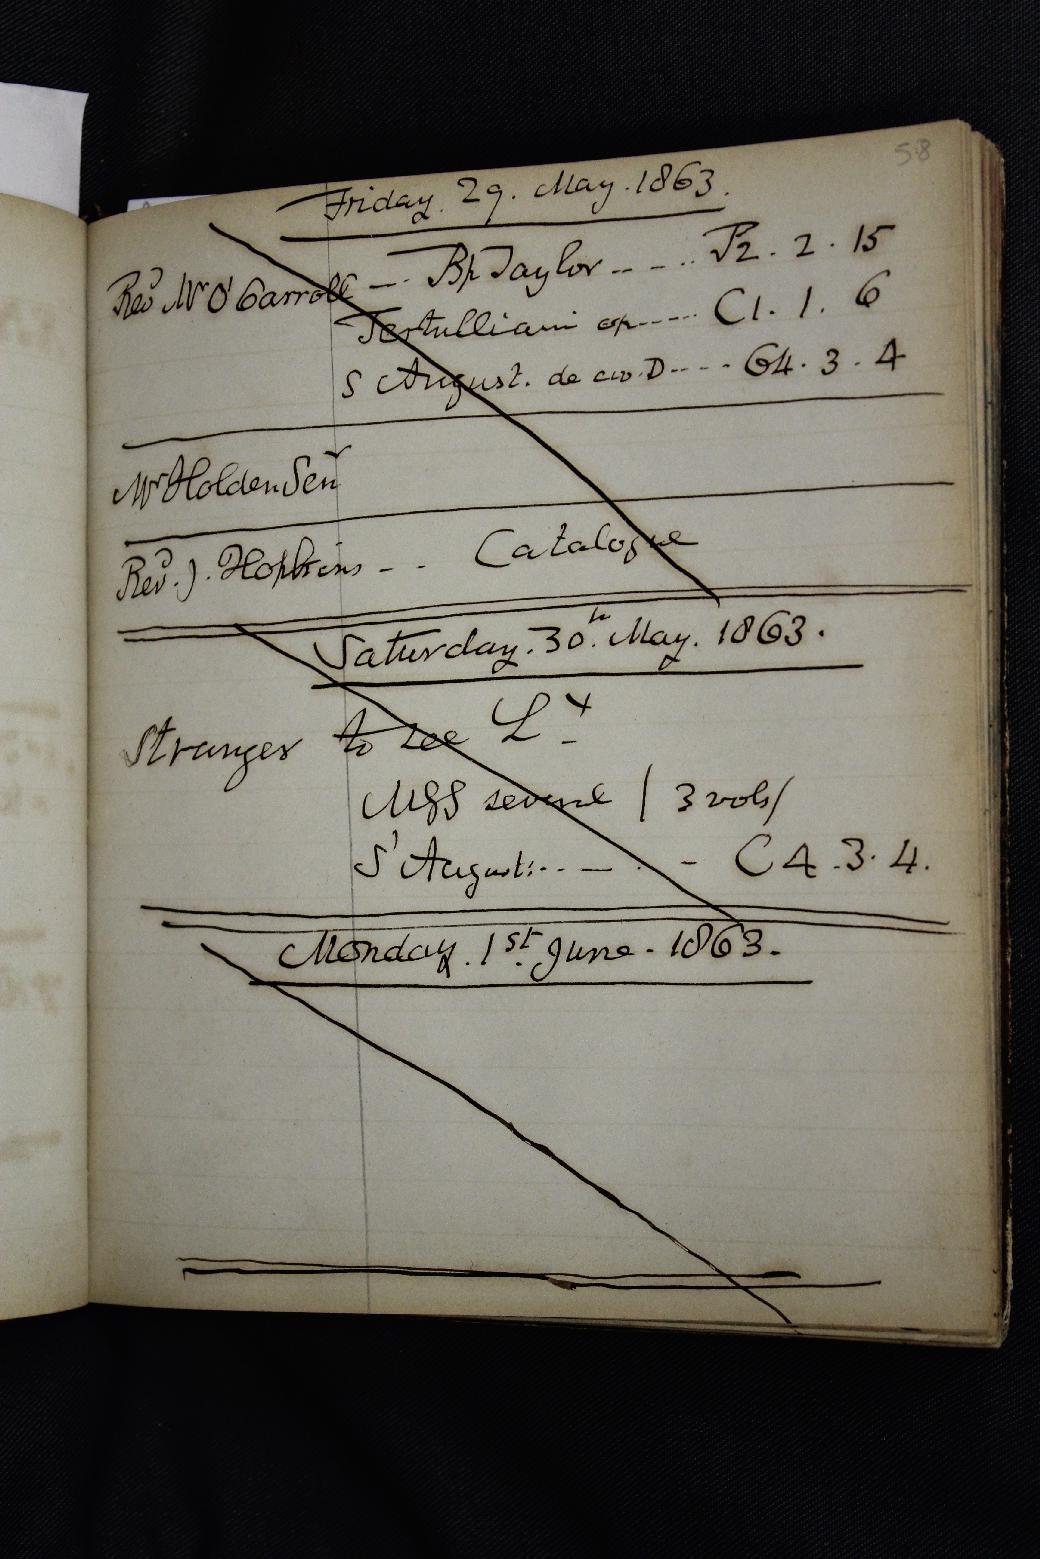 58
Friday. 29. May. 1863.
Revd Mr O'Carroll -- Bp Taylor ---- P2. 2. 15
Tertulliani op---- C1. 1. 6
S August. de civ. D---- G4. 3. 4
Mr Holden Senr
Revd. J. Hopkins - - Catalogue
Saturday. 30th. May. 1863.
Stranger to see Ly
MSS several / 3 vols/
St August:.. - . - C4.3.4.
Monday. 1st. June. 1863.